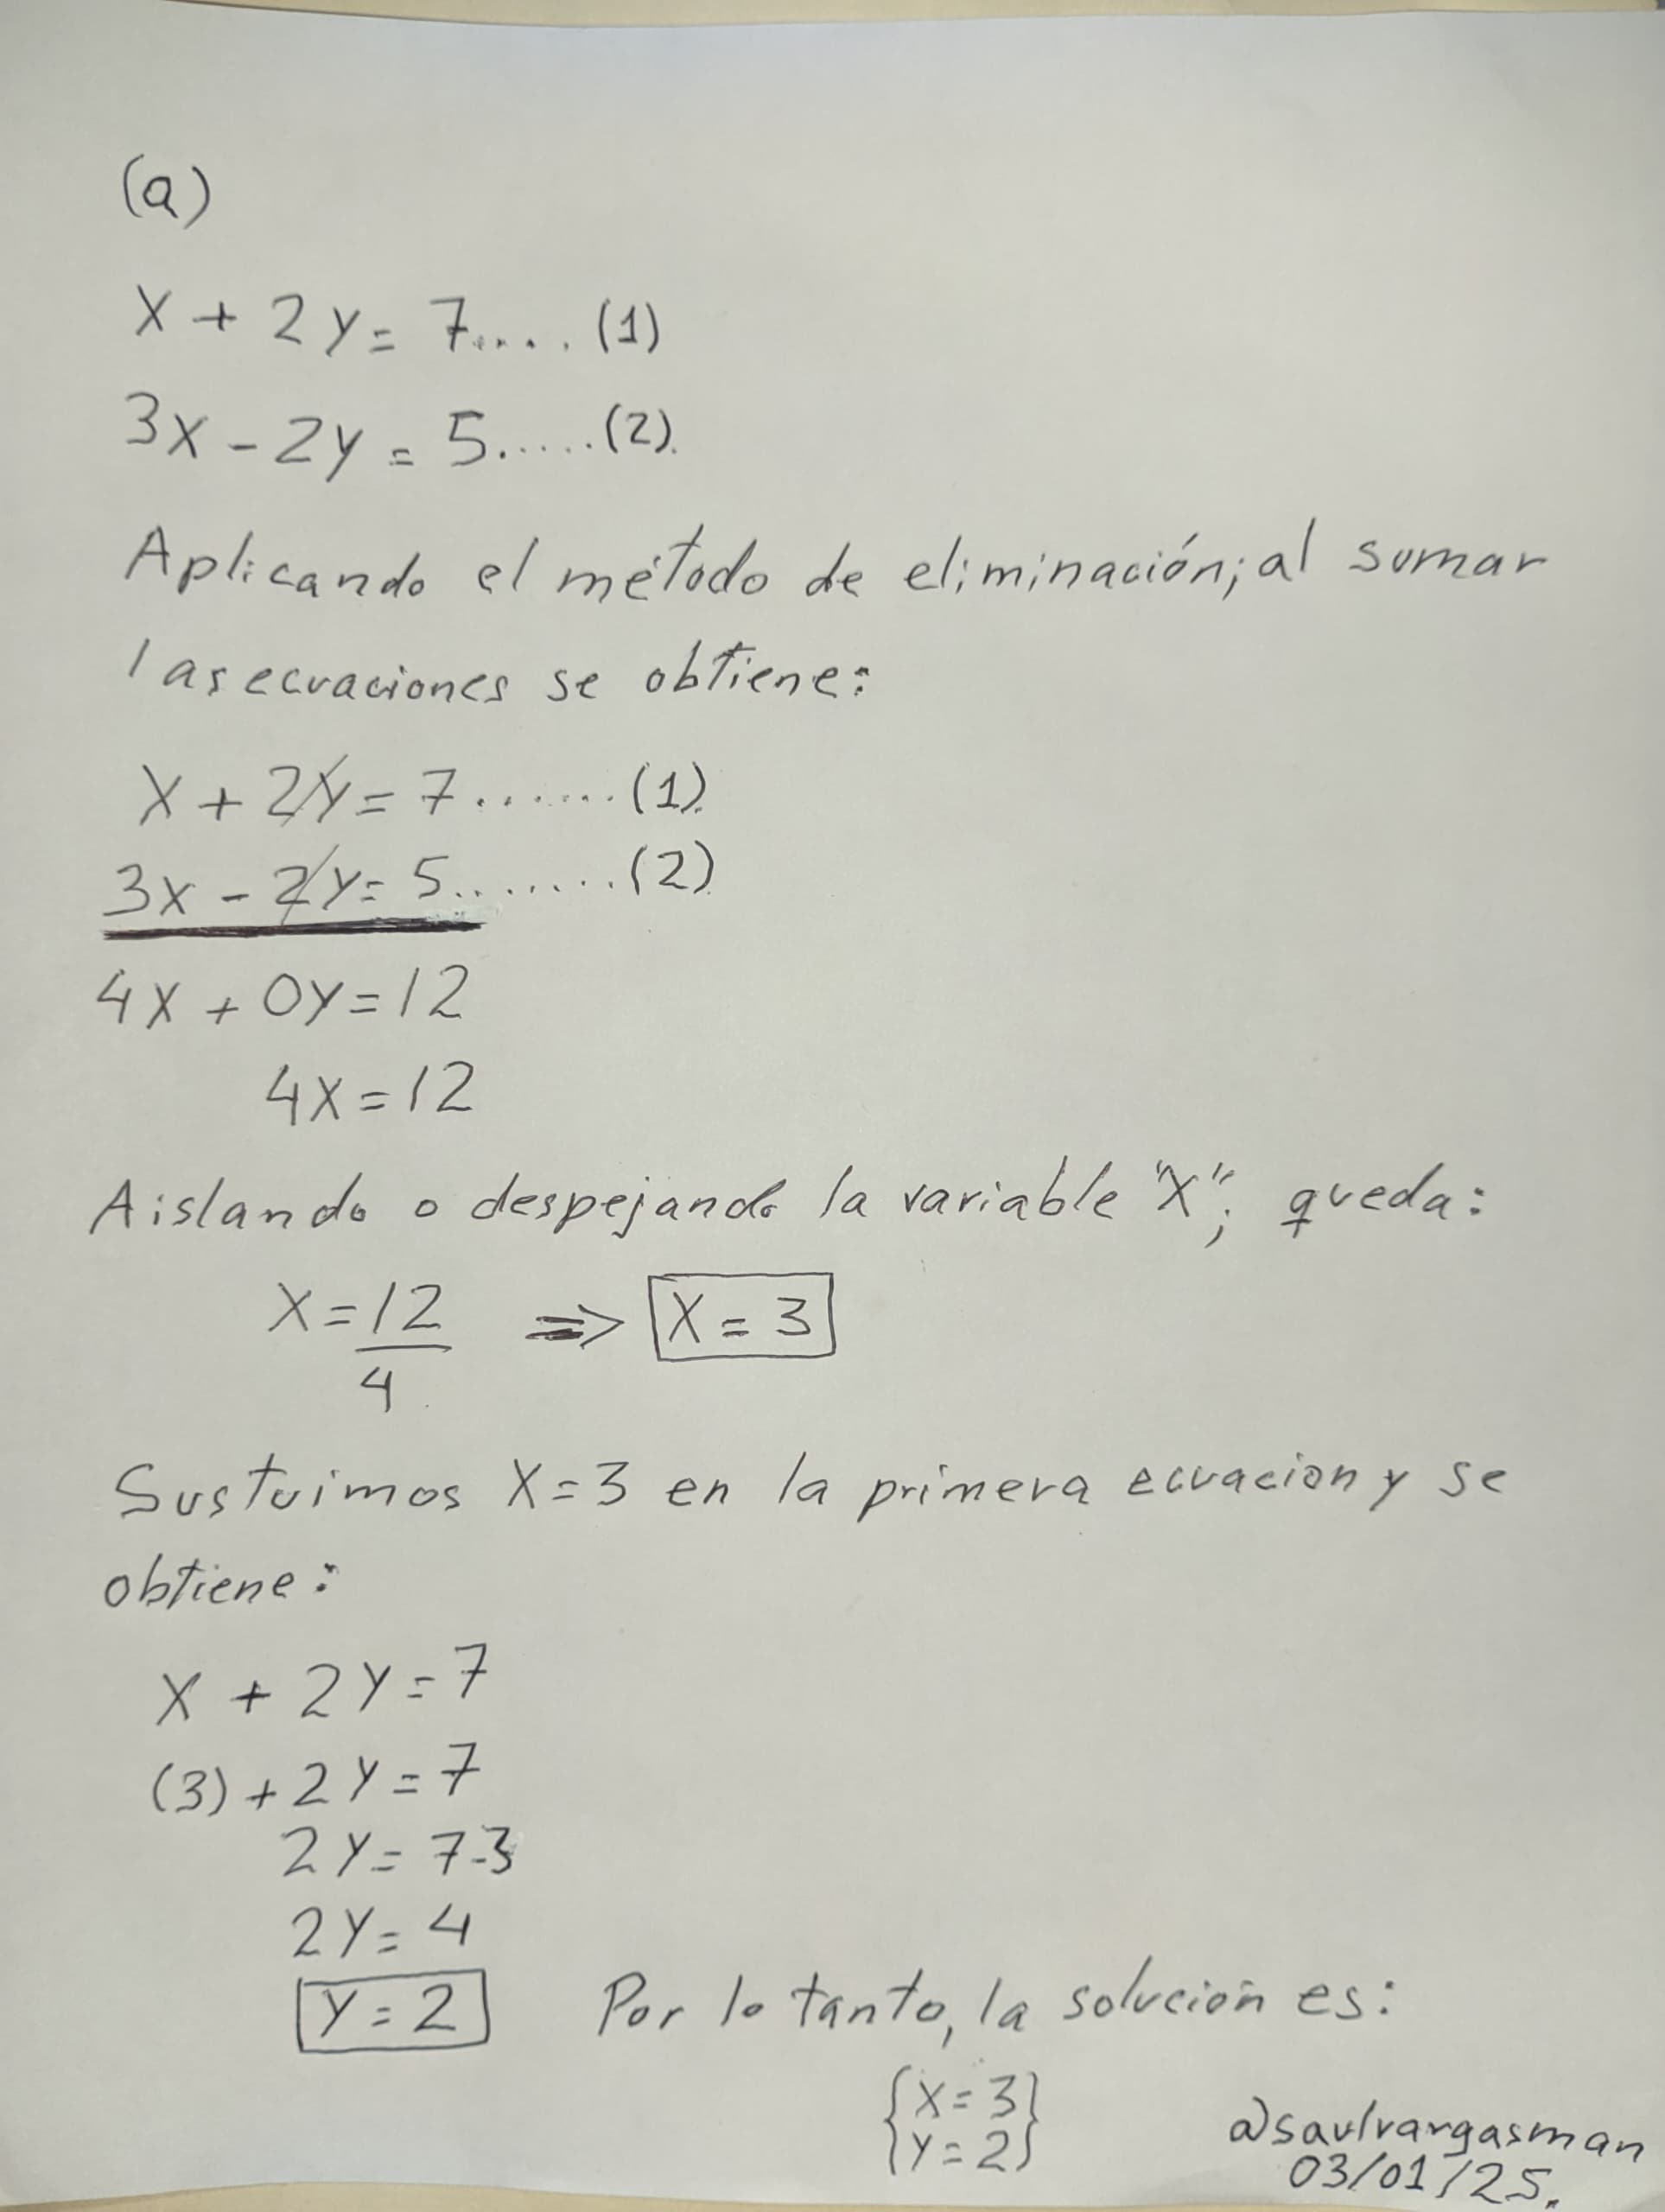 (a)
X + 2y = 7..... (1)
3x - 2y = 5......(2).
Aplicando el método de eliminación; al sumar
las ecuaciones se obtiene:
X + 2y = 7.......(1).
3x - 2y = 5........(2).
4x + 0y = 12
4x = 12
Aislando o despejando la variable "X"; queda:
X = 12/4 => X = 3
Sustuimos X = 3 en la primera ecuacion y se
obtiene:
X + 2y = 7
(3) + 2y = 7
2y = 7-3
2y = 4
y = 2 Por lo tanto, la solución es:
{X = 3
Y = 2}
@saulvargasman
03/01/25.